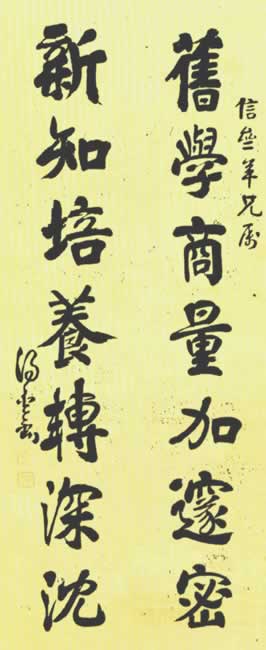 信叁年兄屬
舊學商量加邃密
新知培養轉深沈